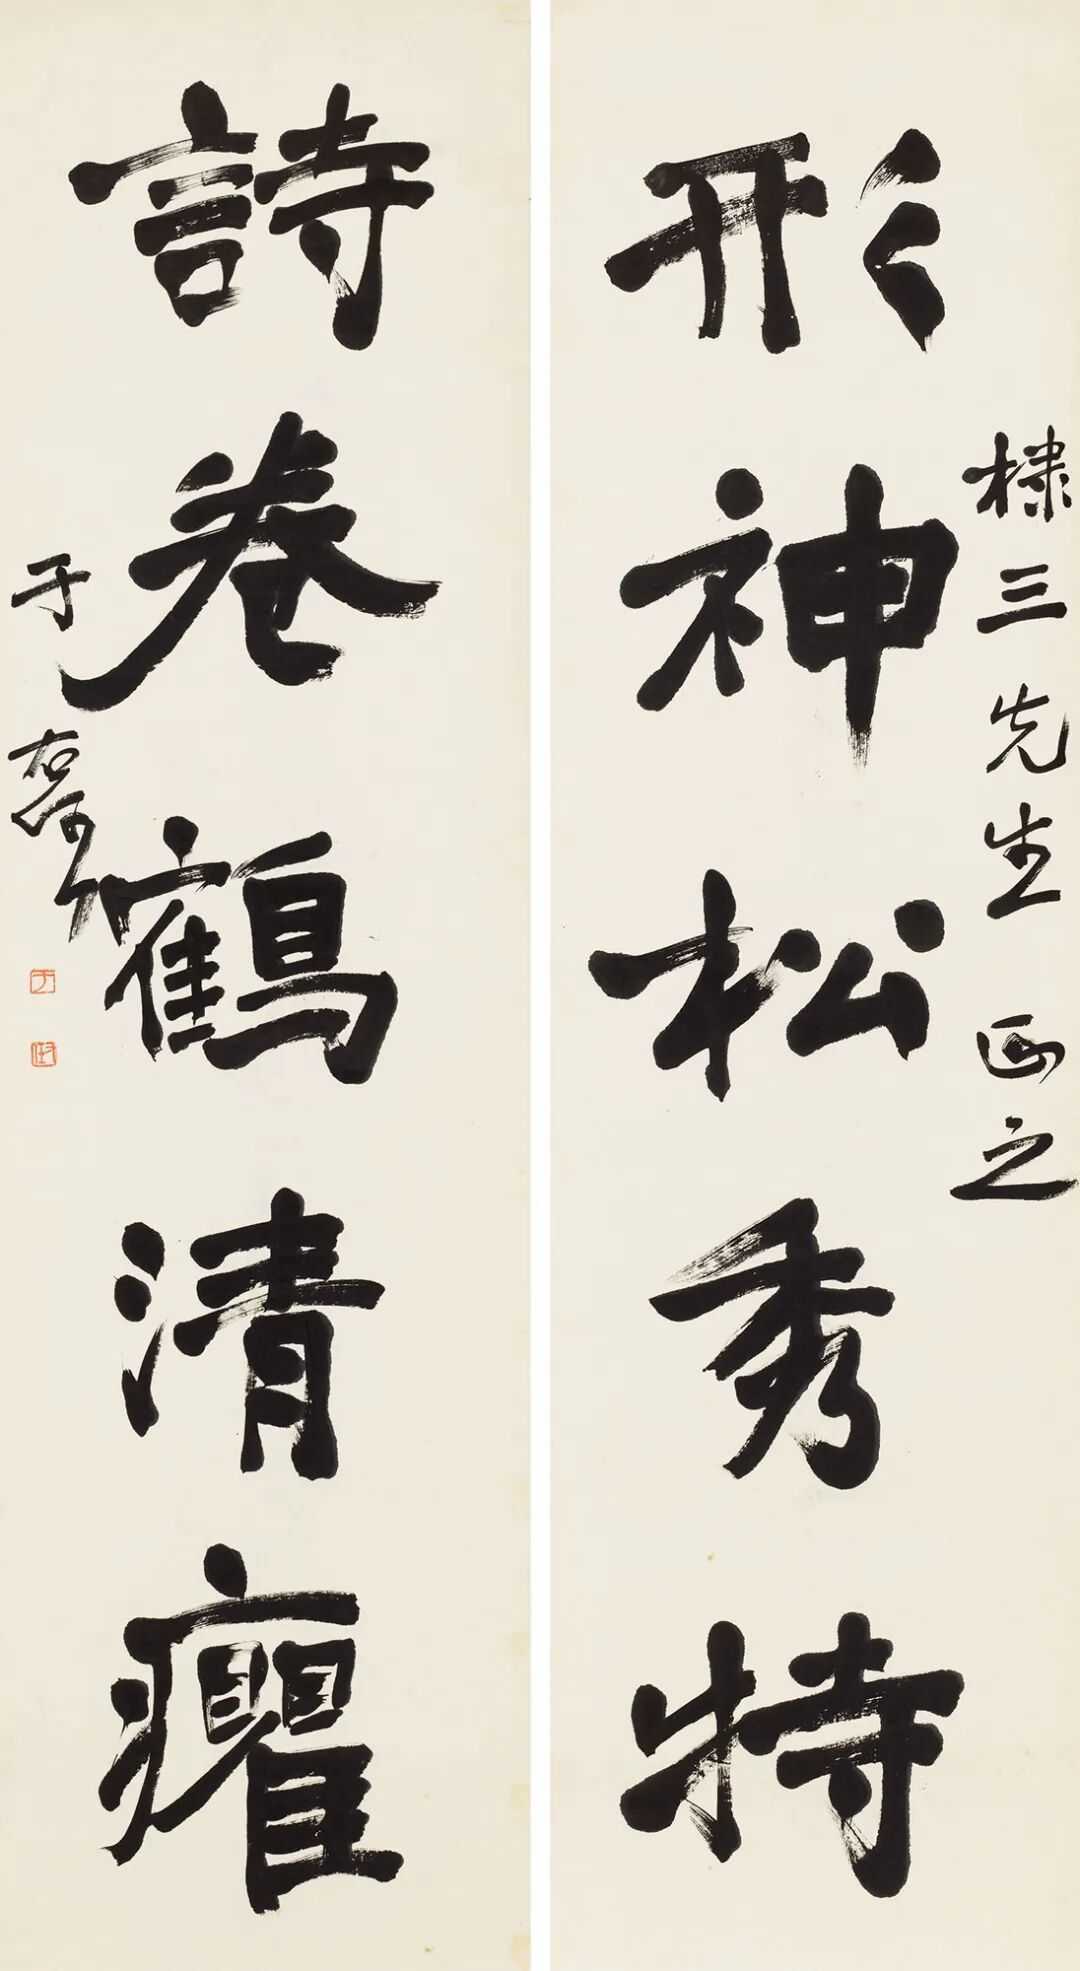 棣三先生 正之
形神松秀特
詩卷鶴清癯
于右任